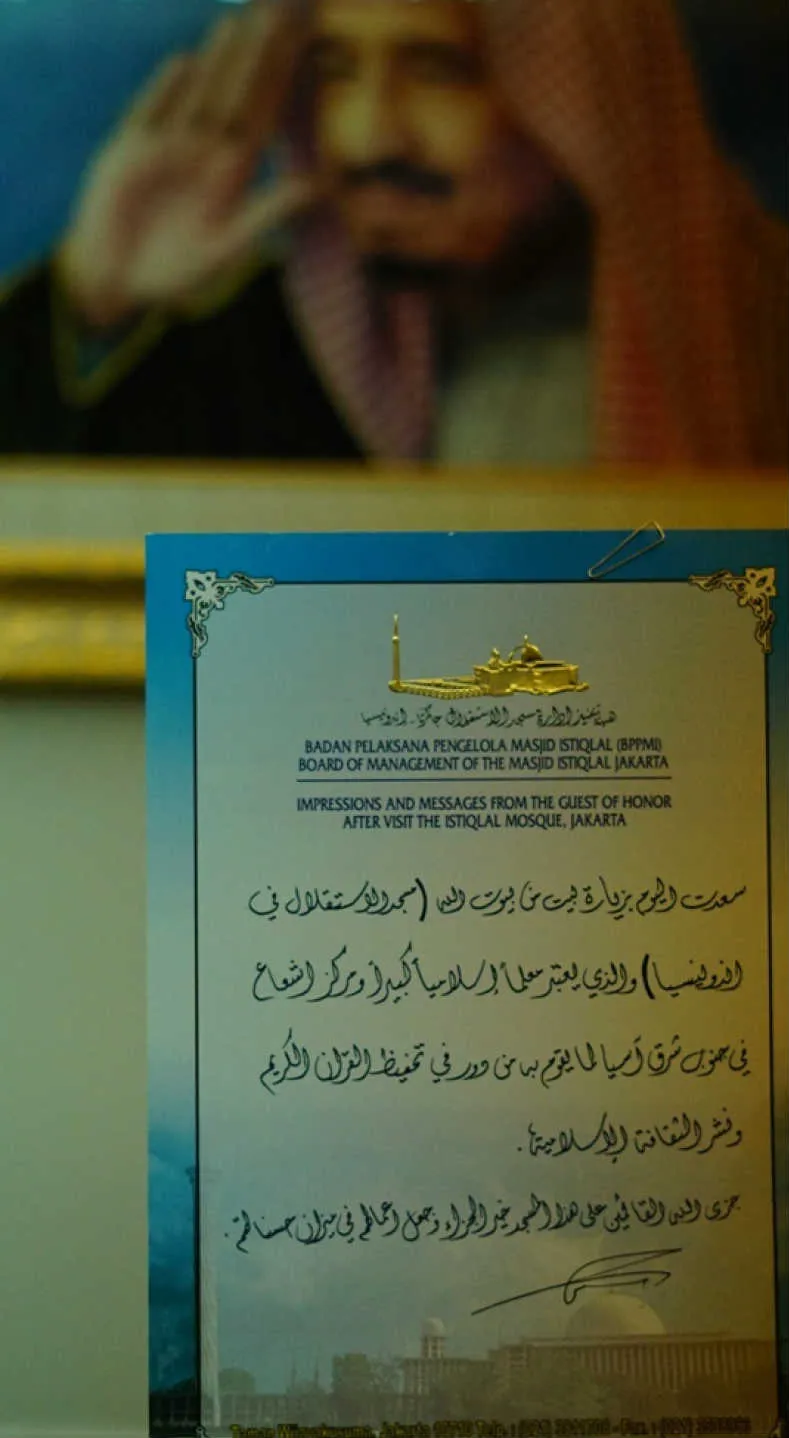 هيئة تنفيذ إدارة مسجد الاستقلال جاكرتا - اندونيسيا
BADAN PELAKSANA PENGELOLA MASJID ISTIQLAL (BPPMI)
BOARD OF MANAGEMENT OF THE MASJID ISTIQLAL JAKARTA
IMPRESSIONS AND MESSAGES FROM THE GUEST OF HONOR
AFTER VISIT THE ISTIQLAL MOSQUE, JAKARTA
سعدت اليوم بزيارة بيت من بيوت الله (مسجد الاستقلال في
اندونيسيا) والذي يعتبر معلماً إسلامياً كبيراً ومركز اشعاع
في جنوب شرق آسيا لما يقوم به من دور في تحفيظ القرآن الكريم
ونشر الثقافة الإسلامية .
جزى الله القائمين على هذا المسجد خير الجزاء وجعل اعمالهم في ميزان حسناتهم .
Jakarta